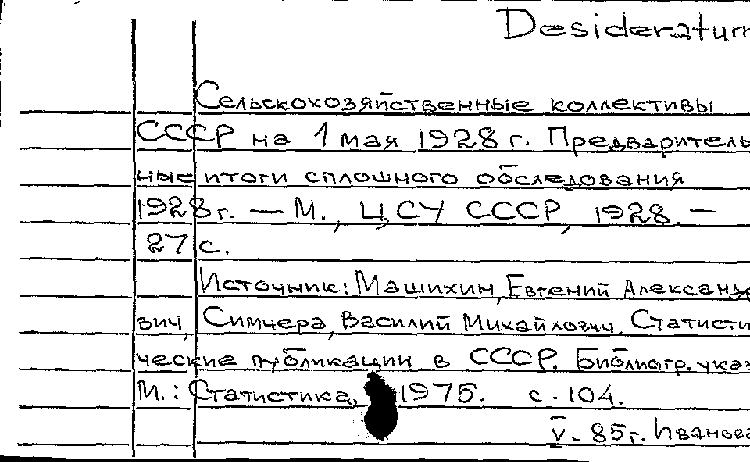 Desideratum
Сельскохозяйственные коллективы
СССР на 1 мая 1928 г. Предваритель
ные итоги сплошного обследования
1928 г. — М., ЦСУ СССР, 1928. —
27 с.
Источник: Машихин, Евгений Александ
вич, Симчера, Василий Михайлович. Статисти
ческие публикации в СССР. Библиогр. указ
М.: Статистика, 1975. с. 104.
V. 85г. Иванова